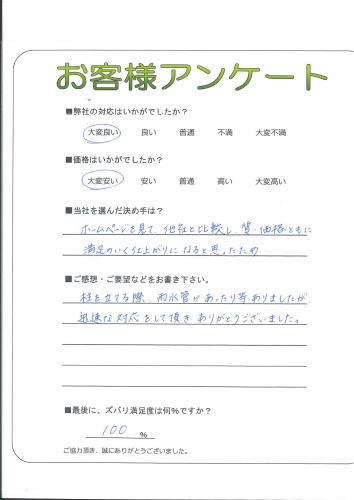 お客様アンケート
■弊社の対応はいかがでしたか？
大変良い 良い 普通 不満 大変不満
■価格はいかがでしたか？
大変安い 安い 普通 高い 大変高い
■当社を選んだ決め手は？
ホームページを見て、他社と比較し、質・価格ともに
満足のいく仕上がりになると思ったため
■ご感想・ご要望などをお書き下さい。
柱を立てる際、雨水管があったり等ありましたが、
迅速な対応をして頂きありがとうございました。
■最後に、ズバリ満足度は何％ですか？
100 %
ご協力頂き、誠にありがとうございました。